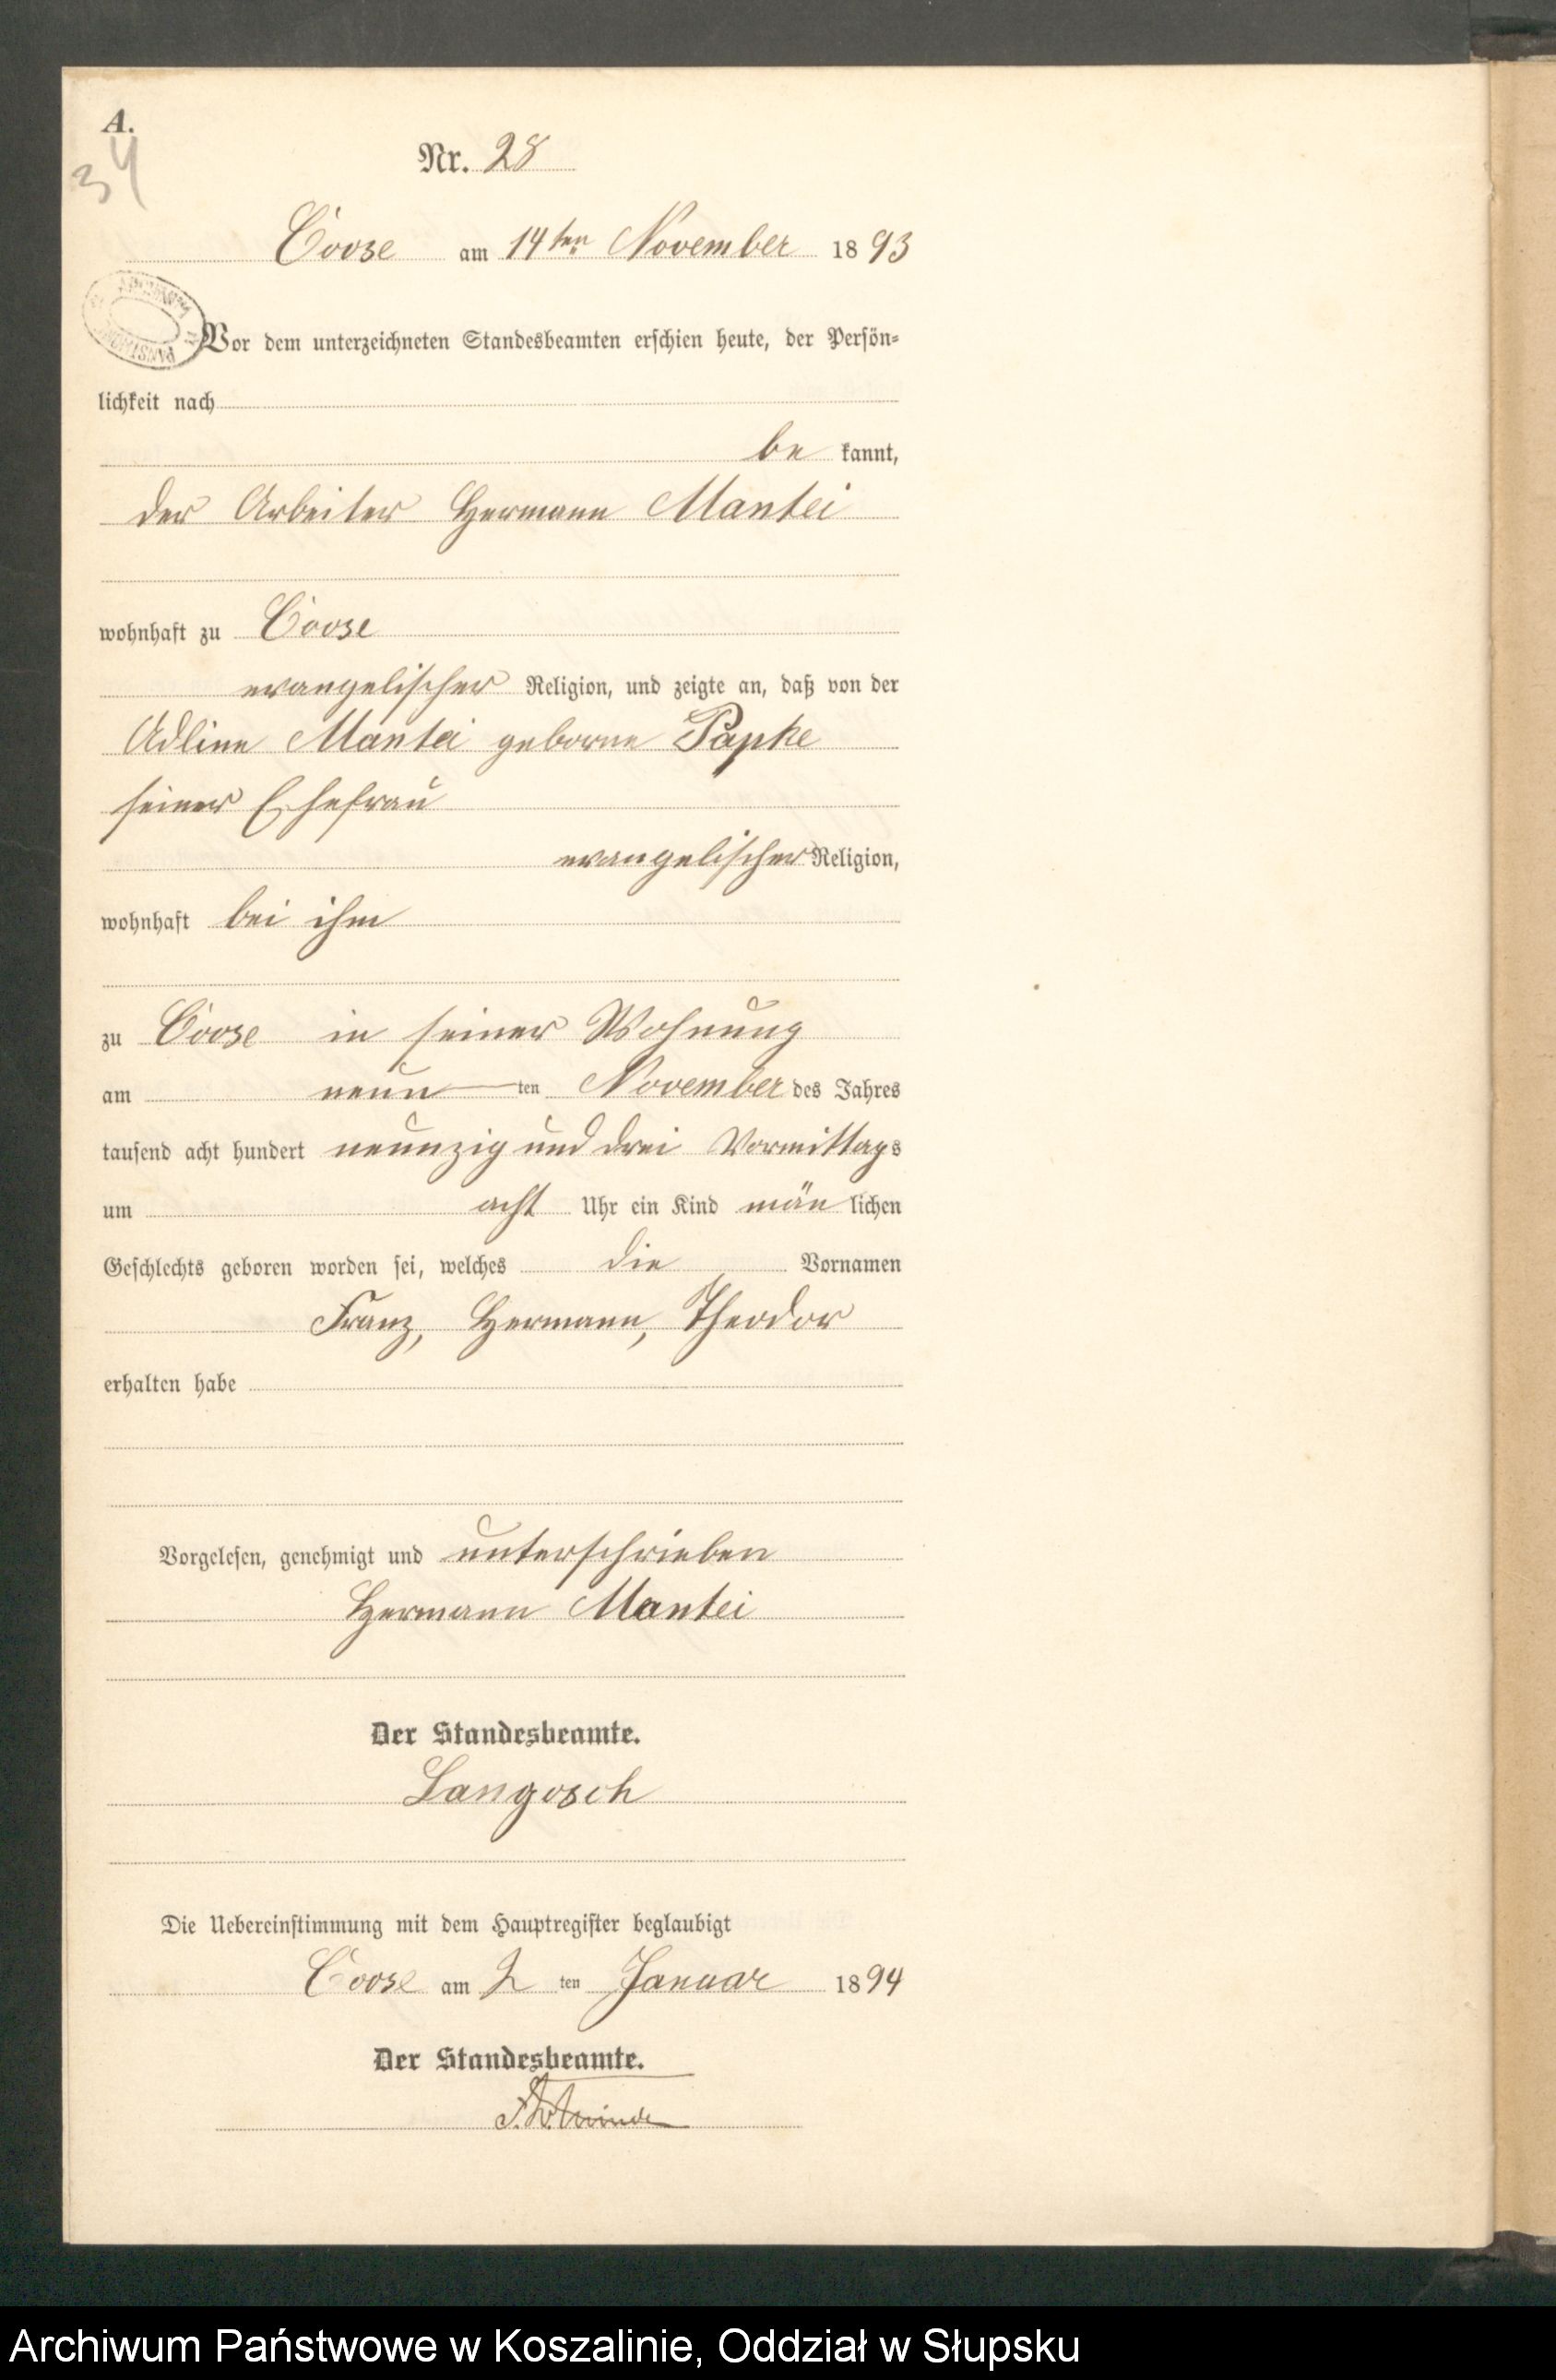 A.
34
Nr. 28
Coose am 14ten November 1893
Vor dem unterzeichneten Standesbeamten erschien heute, der Persön-
lichkeit nach
be kannt,
der Arbeiter Hermann Mantei
wohnhaft zu Coose
evangelischer Religion, und zeigte an, daß von der
Adline Mantei geborne Papke
seiner Ehefrau
evangelischer Religion,
wohnhaft bei ihm
zu Coose in seiner Wohnung
am neun ten November des Jahres
tausend acht hundert neunzig und drei Vormittags
um acht Uhr ein Kind män lichen
Geschlechts geboren worden sei, welches die Vornamen
Franz, Hermann, Theodor
erhalten habe
Vorgelesen, genehmigt und unterschrieben
Hermann Mantei
Der Standesbeamte.
Langosch
Die Uebereinstimmung mit dem Hauptregister beglaubigt
Coose am 2 ten Januar 1894
Der Standesbeamte.
Archiwum Państwowe w Koszalinie, Oddział w Słupsku